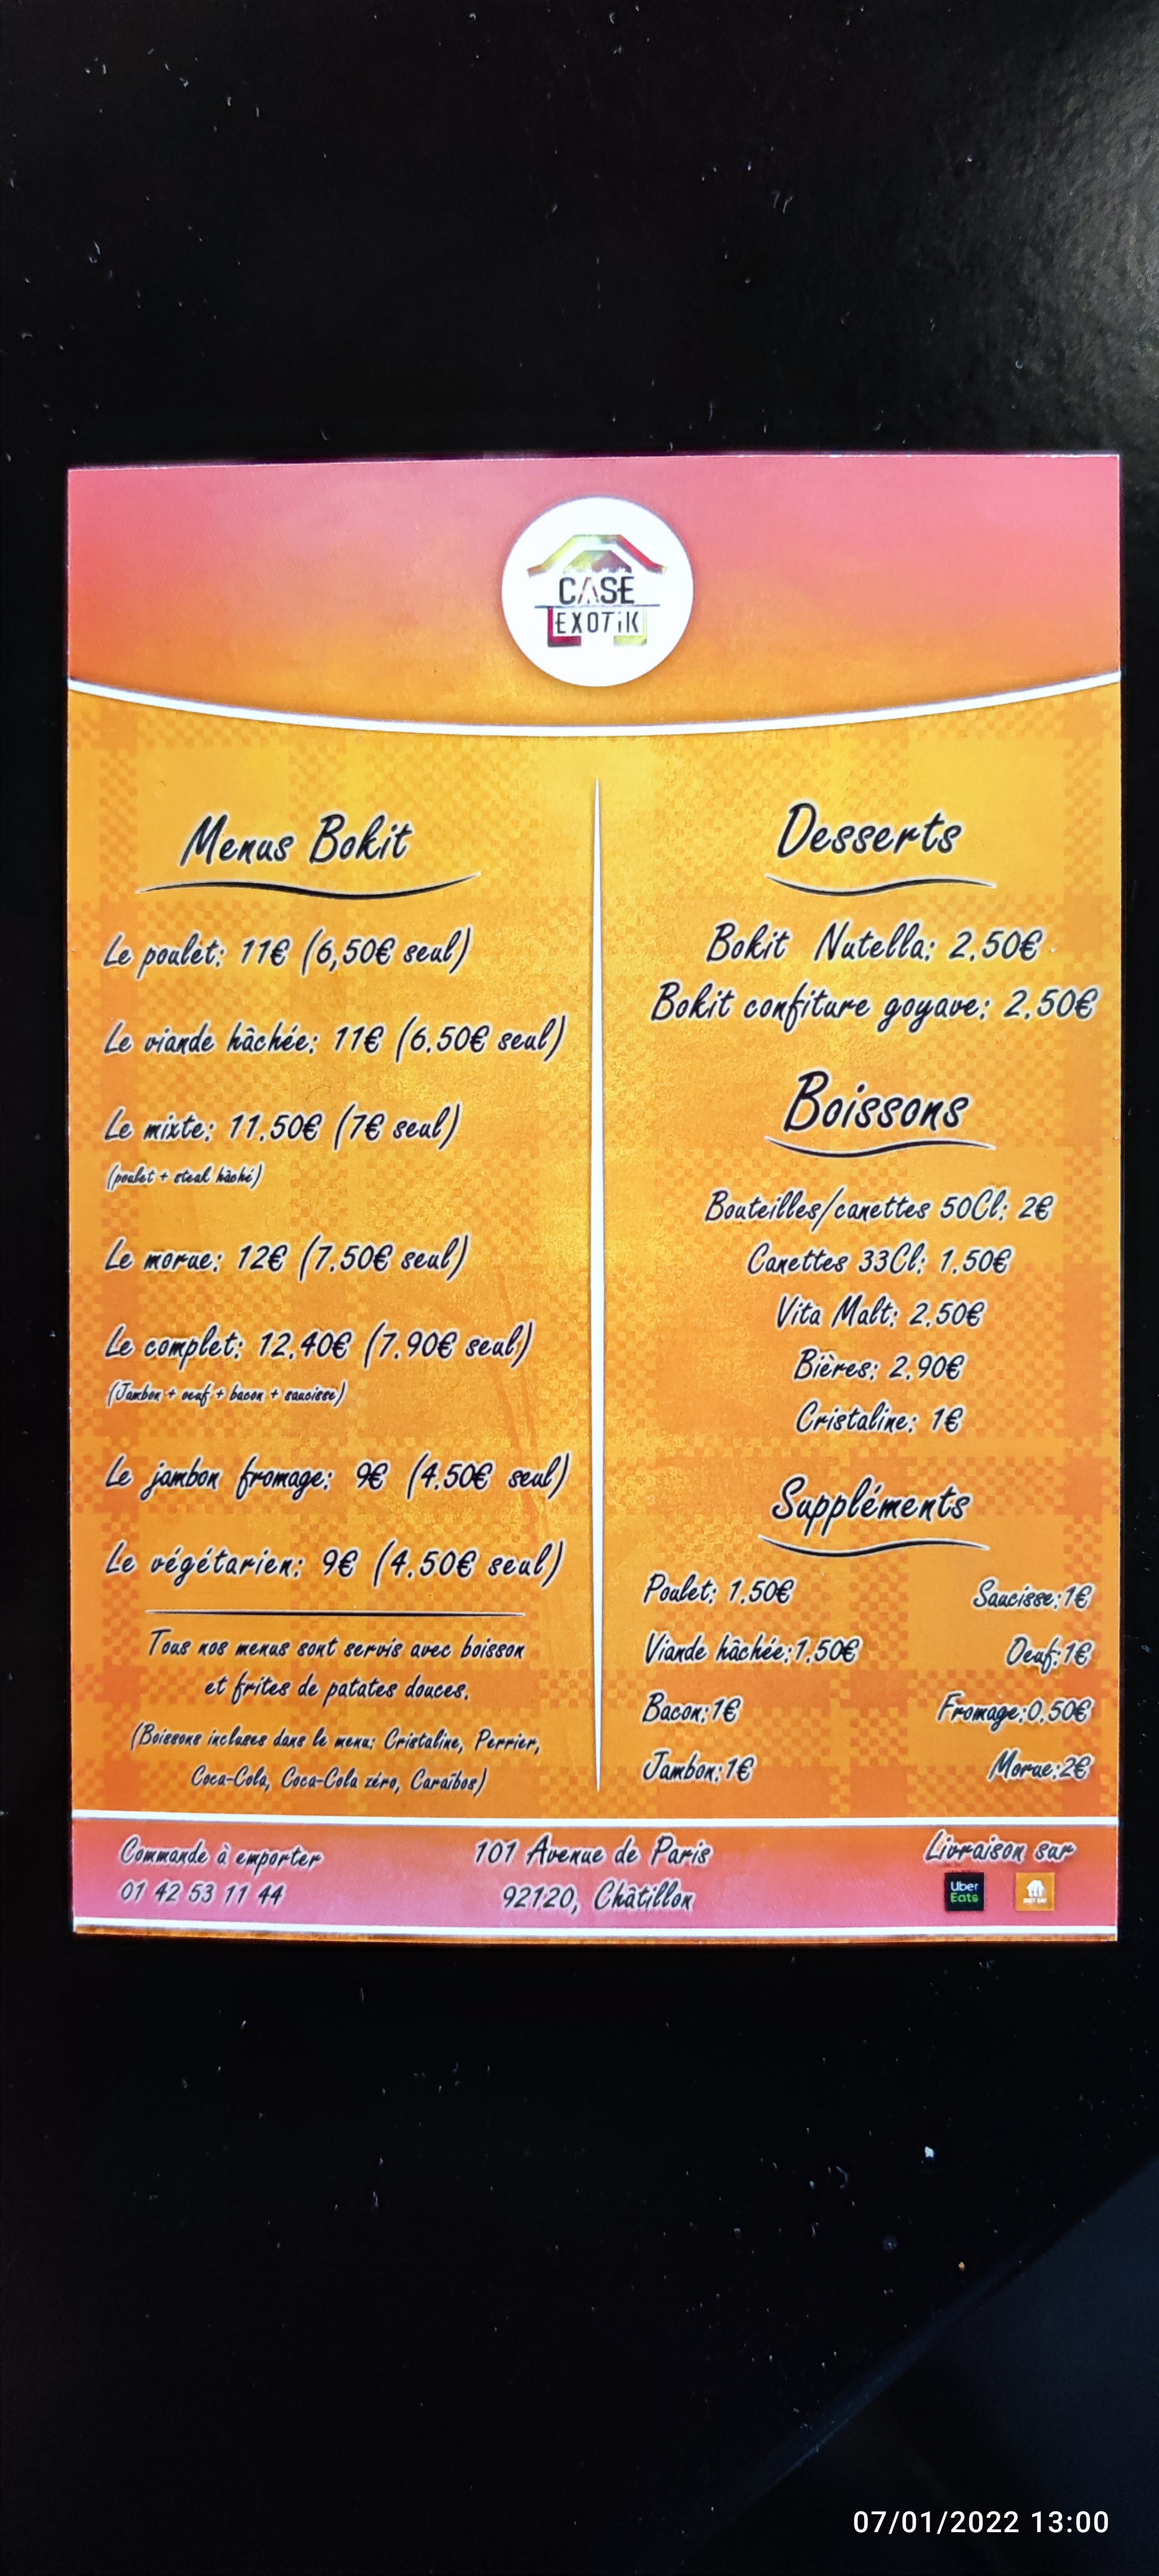 CASE
EXOTiK
Menus Bokit
Le poulet: 11€ (6,50€ seul)
Le viande hâchée: 11€ (6.50€ seul)
Le mixte: 11.50€ (7€ seul)
(poulet + steak hâché)
Le morue: 12€ (7.50€ seul)
Le complet: 12.40€ (7.90€ seul)
(Jambon + oeuf + bacon + saucisse)
Le jambon fromage: 9€ (4.50€ seul)
Le végétarien: 9€ (4.50€ seul)
Tous nos menus sont servis avec boisson
et frites de patates douces.
(Boissons incluses dans le menu: Cristaline, Perrier,
Coca-Cola, Coca-Cola zéro, Caraïbos)
Desserts
Bokit Nutella: 2.50€
Bokit confiture goyave: 2.50€
Boissons
Bouteilles/canettes 50Cl: 2€
Canettes 33Cl: 1.50€
Vita Malt: 2.50€
Bières: 2.90€
Cristaline: 1€
Suppléments
Poulet: 1.50€ Saucisse:1€
Viande hâchée:1.50€ Oeuf:1€
Bacon:1€ Fromage:0.50€
Jambon:1€ Morue:2€
Commande à emporter
01 42 53 11 44
101 Avenue de Paris
92120, Châtillon
Livraison sur
Uber
Eats
07/01/2022 13:00